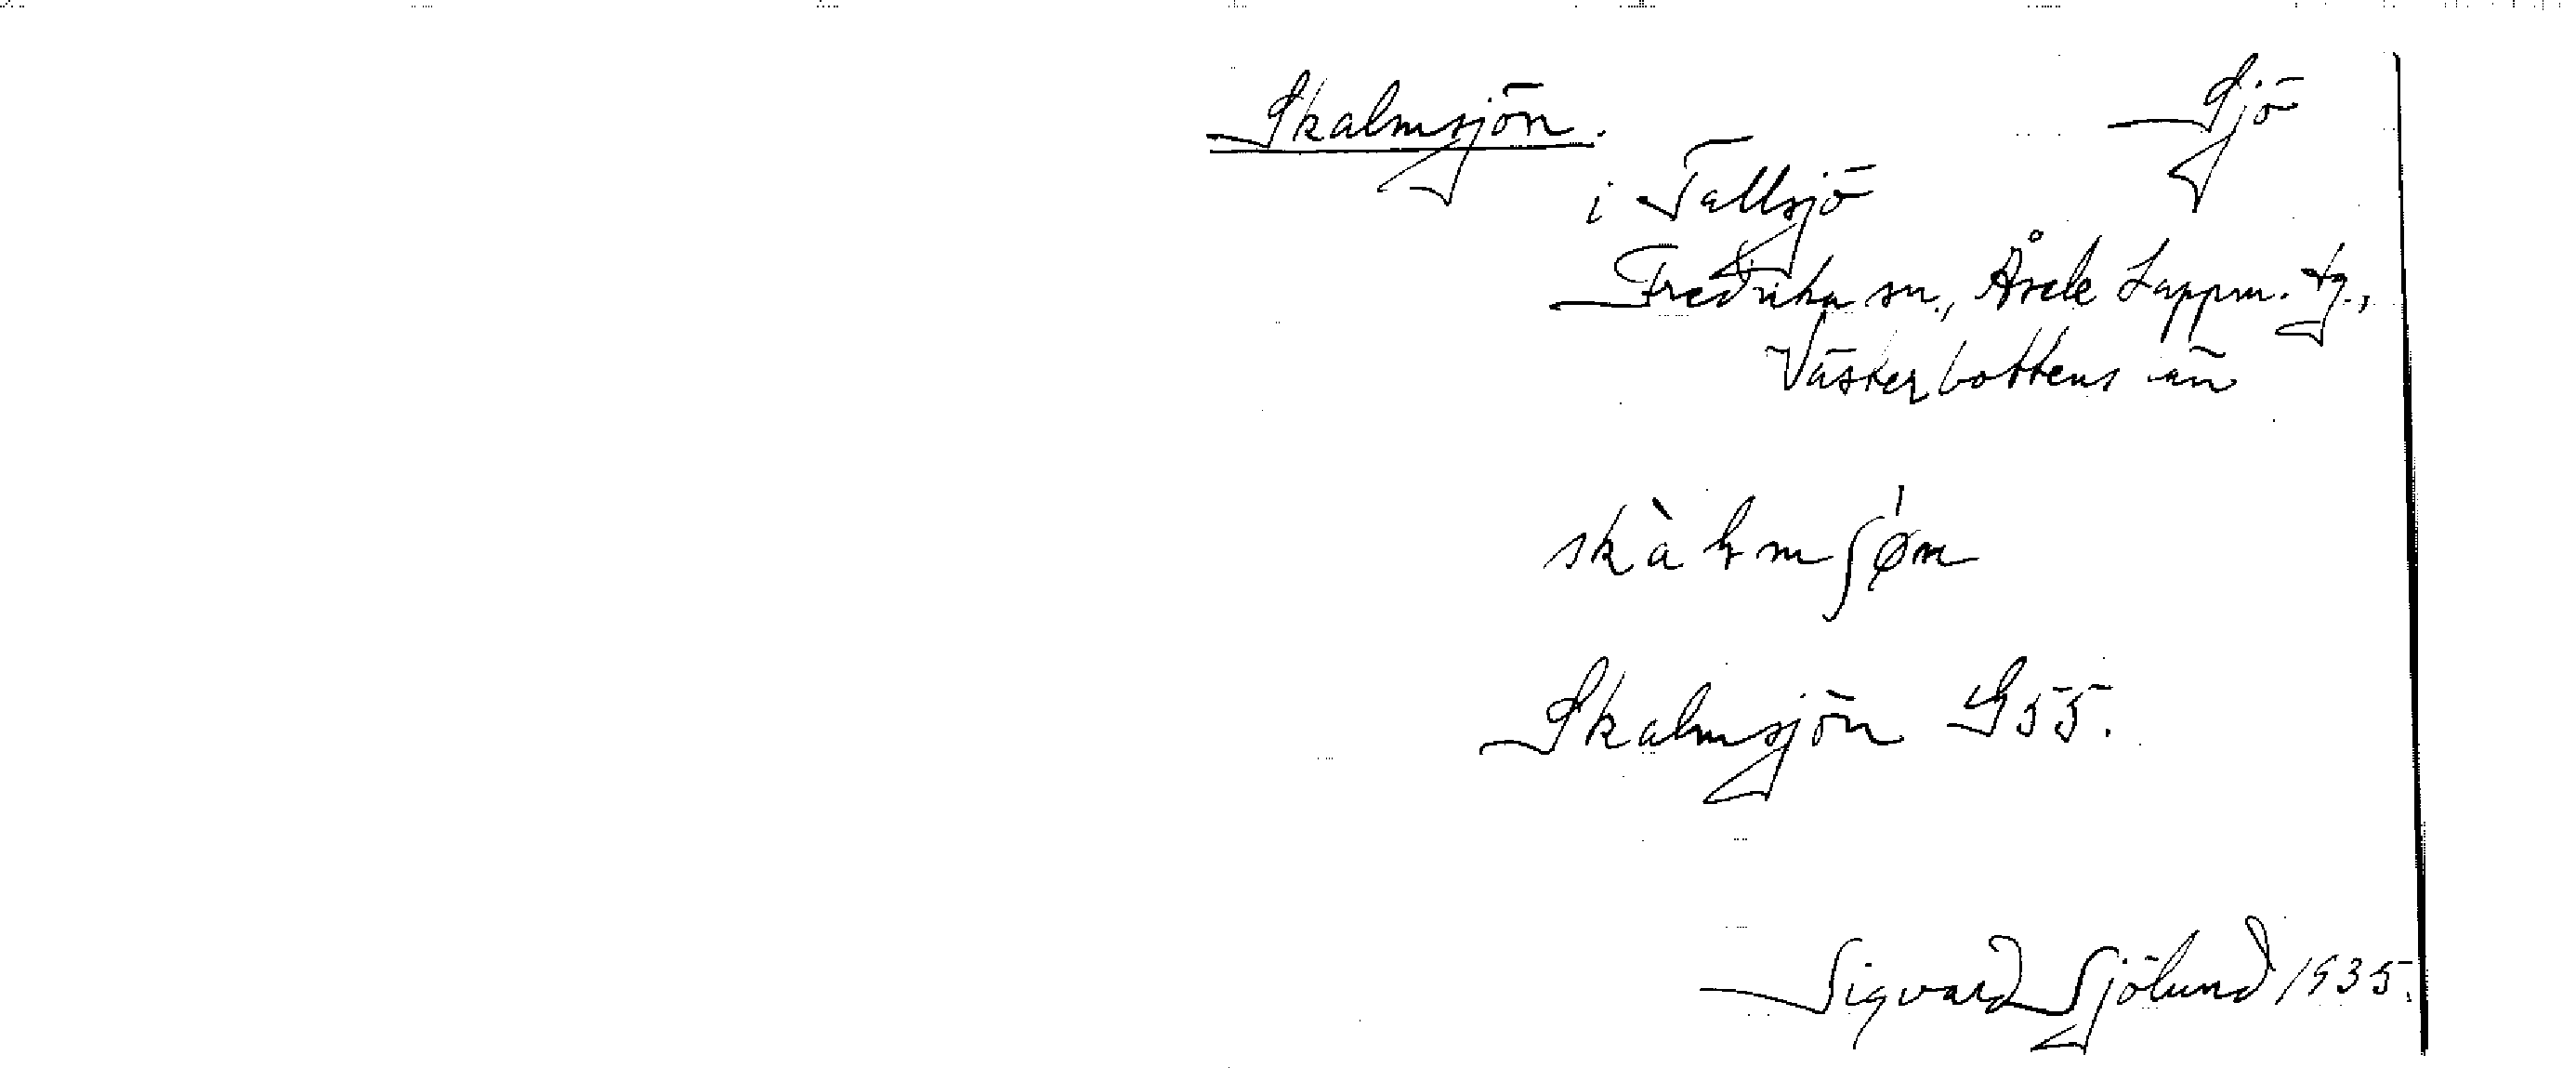 Skalmsjön. Sjö
i Tallsjö
Fredrika sn., Åsele Lappm. tg.,
Västerbottens län
skàlmʃø̍n
Skalmsjön G55.
Sigvard Sjölund 1935.